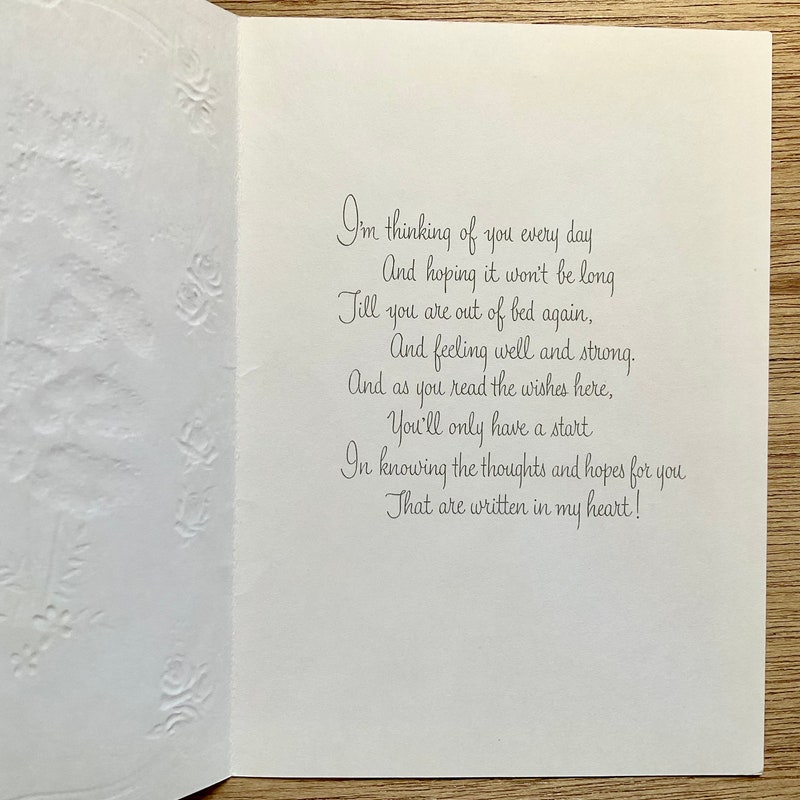 I'm thinking of you every day
And hoping it won't be long
Till you are out of bed again,
And feeling well and strong.
And as you read the wishes here,
You'll only have a start
In knowing the thoughts and hopes for you
That are written in my heart!